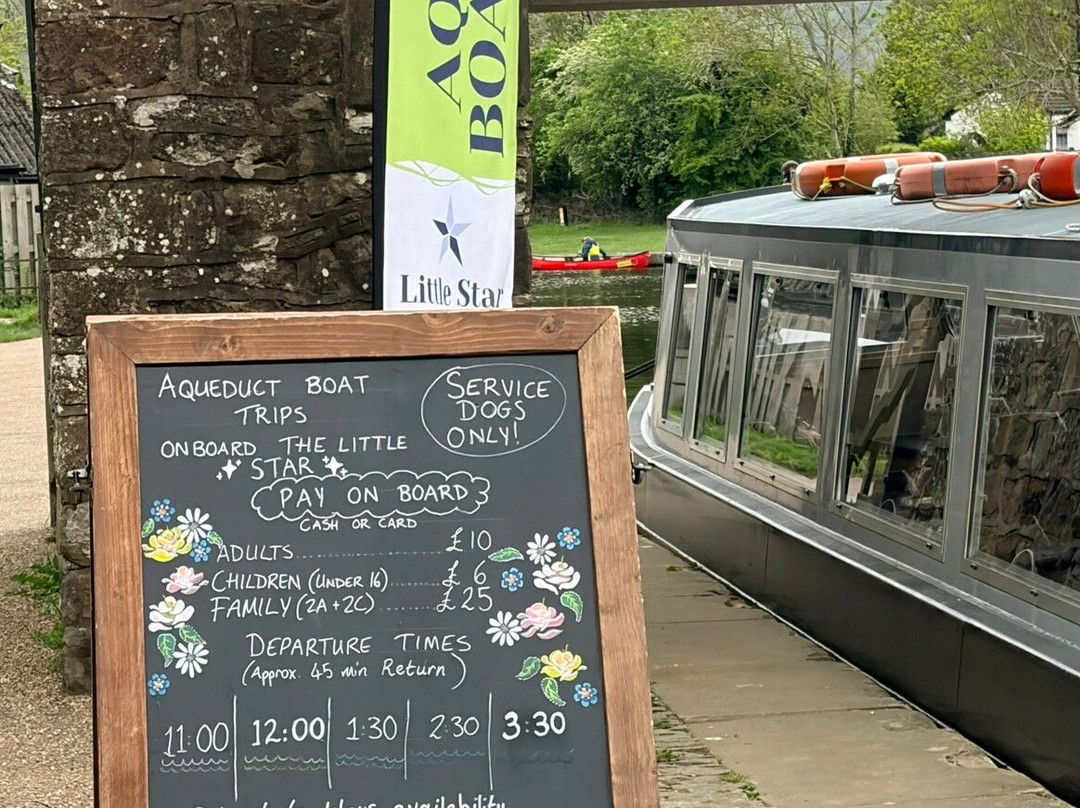 AQ
BOA
Little Star
AQUEDUCT BOAT
TRIPS
ONBOARD THE LITTLE
STAR
SERVICE
DOGS
ONLY!
PAY ON BOARD
CASH OR CARD
ADULTS.................... £10
CHILDREN (UNDER 16)......... £6
FAMILY (2A+2C).......... £25
DEPARTURE TIMES
(Approx. 45 min Return)
11:00 12:00 1:30 2:30 3:30
availability